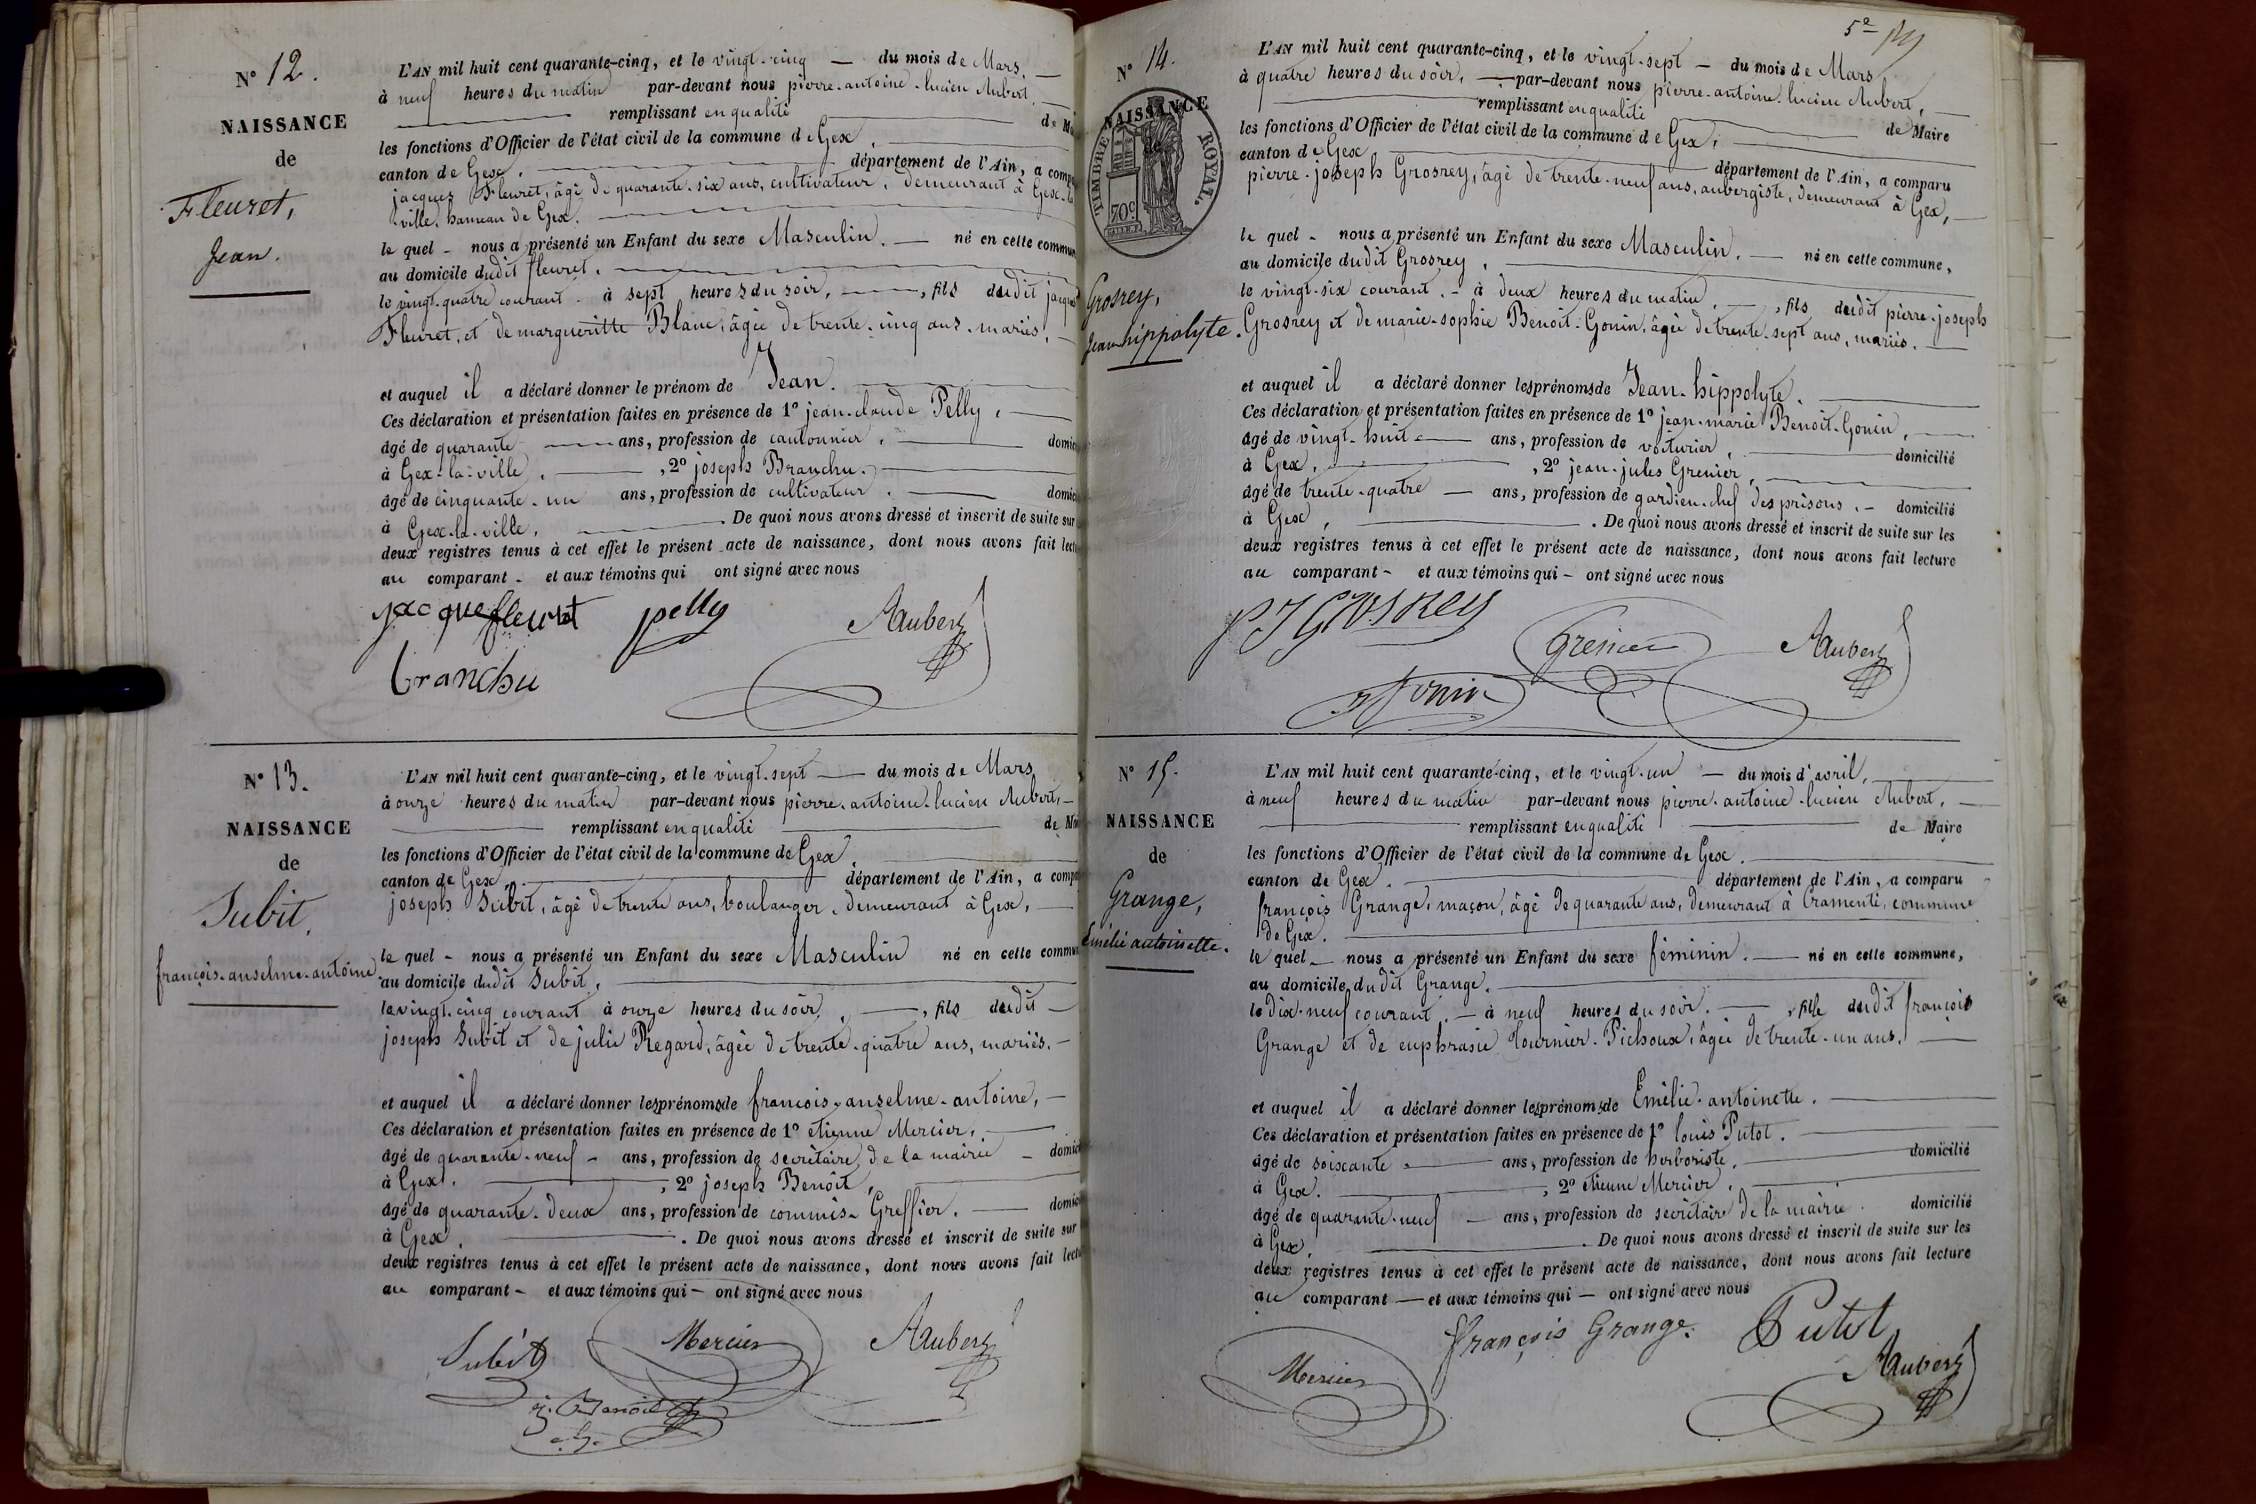 N° 12.
NAISSANCE
de
Fleuret,
Jean.
L'AN mil huit cent quarante-cinq, et le vingt-cinq — du mois de Mars. —
à neuf heures du matin par-devant nous pierre-antoine-lucien Aubert,
remplissant en qualité de
les fonctions d'Officier de l'état civil de la commune de Gex,
canton de Gex, département de l'Ain, a
jacques Fleuret, âgé de quarante-six ans, cultivateur, demeurant à Gex-la
ville, hameau de Gex.
le quel - nous a présenté un Enfant du sexe Masculin. — né en cette
au domicile dudit fleuret.
le vingt-quatre courant - à sept heures du soir, —, fils dudit jacques
Fleuret, et de margueritte Blanc, âgée de trente-cinq ans, mariés. —
et auquel il a déclaré donner le prénom de Jean.
Ces déclaration et présentation faites en présence de 1° jean-claude Pelly,
âgé de quarante — ans, profession de cantonnier,
à Gex-la-ville, —, 2° joseph Branchu.
âgé de cinquante-un ans, profession de cultivateur.
à Gex-la-ville, . De quoi nous avons dressé et inscrit de suite sur
deux registres tenus à cet effet le présent acte de naissance, dont nous avons fait
au comparant - et aux témoins qui ont signé avec nous
jacque fleuret pelly Aubert
branchu
N° 13.
NAISSANCE
de
Subit,
françois-anselme-antoine
L'AN mil huit cent quarante-cinq, et le vingt-sept — du mois de Mars
à onze heures du matin par-devant nous pierre-antoine-lucien Aubert, —
remplissant en qualité de
les fonctions d'Officier de l'état civil de la commune de Gex,
canton de Gex, département de l'Ain, a
joseph Subit, âgé de trente ans, boulanger, demeurant à Gex,
le quel - nous a présenté un Enfant du sexe Masculin né en cette
au domicile dudit Subit,
le vingt-cinq courant à onze heures du soir, —, fils dudit —
joseph Subit et de julie Regard, âgée de trente-quatre ans, mariés. —
et auquel il a déclaré donner les prénoms de françois-anselme-antoine, —
Ces déclaration et présentation faites en présence de 1° etienne Mercier,
âgé de quarante-neuf - ans, profession de secrétaire de la mairie -
à Gex. , 2° joseph Benoit,
âgé de quarante-deux ans, profession de commis-Greffier. —
à Gex, . De quoi nous avons dressé et inscrit de suite sur
deux registres tenus à cet effet le présent acte de naissance, dont nous avons fait
au comparant - et aux témoins qui - ont signé avec nous
Subit Mercier Aubert
j. Benoit
5e
N° 14.
NAISSANCE
TIMBRE ROYAL.
70c
Grosrey,
Jean-hippolyte.
L'AN mil huit cent quarante-cinq, et le vingt-sept — du mois de Mars
à quatre heures du soir, — par-devant nous pierre-antoine-lucien Aubert,
remplissant en qualité de Maire
les fonctions d'Officier de l'état civil de la commune de Gex,
canton de Gex département de l'Ain, a comparu
pierre-joseph Grosrey, âgé de trente-neuf ans, aubergiste, demeurant à Gex, —
le quel - nous a présenté un Enfant du sexe Masculin. — né en cette commune,
au domicile dudit Grosrey,
le vingt-six courant. - à deux heures du matin. —, fils dudit pierre-joseph
Grosrey et de marie-sophie Benoit-Gonin, âgée de trente-sept ans, mariés. —
et auquel il a déclaré donner les prénoms de Jean-hippolyte.
Ces déclaration et présentation faites en présence de 1° jean-marie Benoit-Gonin,
âgé de vingt-huit — ans, profession de voiturier, domicilié
à Gex, , 2° jean-jules Grenier,
âgé de trente-quatre — ans, profession de gardien-chef des prisons. - domicilié
à Gex, . De quoi nous avons dressé et inscrit de suite sur les
deux registres tenus à cet effet le présent acte de naissance, dont nous avons fait lecture
au comparant - et aux témoins qui - ont signé avec nous
PJ Grosrey Grenier Aubert
Gonin
N° 15.
NAISSANCE
de
Grange,
Emélie antoinette.
L'AN mil huit cent quarante-cinq, et le vingt-un — du mois d'avril,
à neuf heures du matin par-devant nous pierre-antoine-lucien Aubert, —
remplissant en qualité de Maire
les fonctions d'Officier de l'état civil de la commune de Gex.
canton de Gex. département de l'Ain, a comparu
françois Grange, maçon, âgé de quarante ans, demeurant à Cramenti, commune
de Gex.
le quel — nous a présenté un Enfant du sexe féminin. — né en cette commune,
au domicile dudit Grange.
le dix-neuf courant. — à neuf heures du soir. —, fille dudit françois
Grange et de euphrasie Tournier-Pichoux, âgée de trente-un ans.
et auquel il a déclaré donner les prénoms de Emélie-antoinette.
Ces déclaration et présentation faites en présence de 1° louis Putot.
âgé de soixante — ans, profession de herboriste, domicilié
à Gex. , 2° etienne Mercier,
âgé de quarante-neuf — ans, profession de secrétaire de la mairie. domicilié
à Gex, . De quoi nous avons dressé et inscrit de suite sur les
deux registres tenus à cet effet le présent acte de naissance, dont nous avons fait lecture
au comparant — et aux témoins qui — ont signé avec nous
françois Grange. Putot
Mercier Aubert